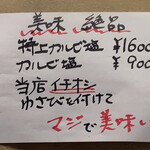 美味 絶品
特上カルビ塩 ¥1600
カルビ塩 ¥900
当店イチオシ
わさびを付けて
マジで美味い